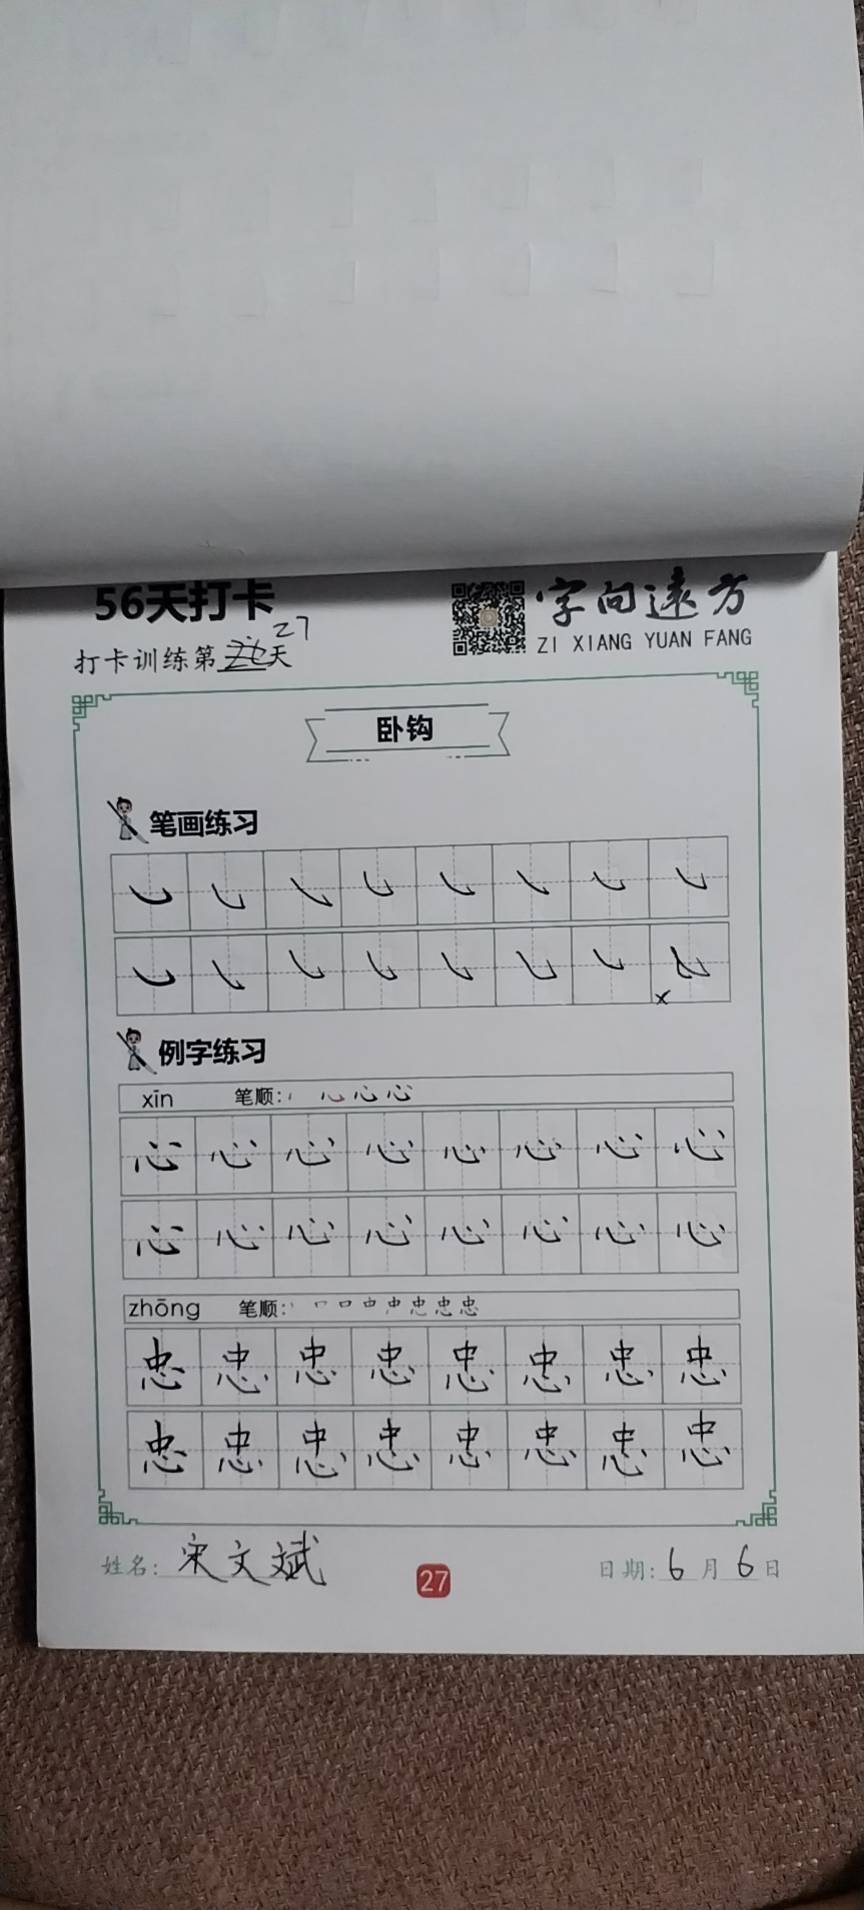 56天打卡
字向遠方
ZI XIANG YUAN FANG
27
打卡训练第天
卧钩
笔画练习
例字练习
xīn 笔顺：
心 心 心 心 心 心 心 心
心 心 心 心 心 心 心 心
zhōng 笔顺：
忠 忠 忠 忠 忠 忠 忠 忠
忠 忠 忠 忠 忠 忠 忠 忠
姓名：宋文斌
27
日期：6月6日